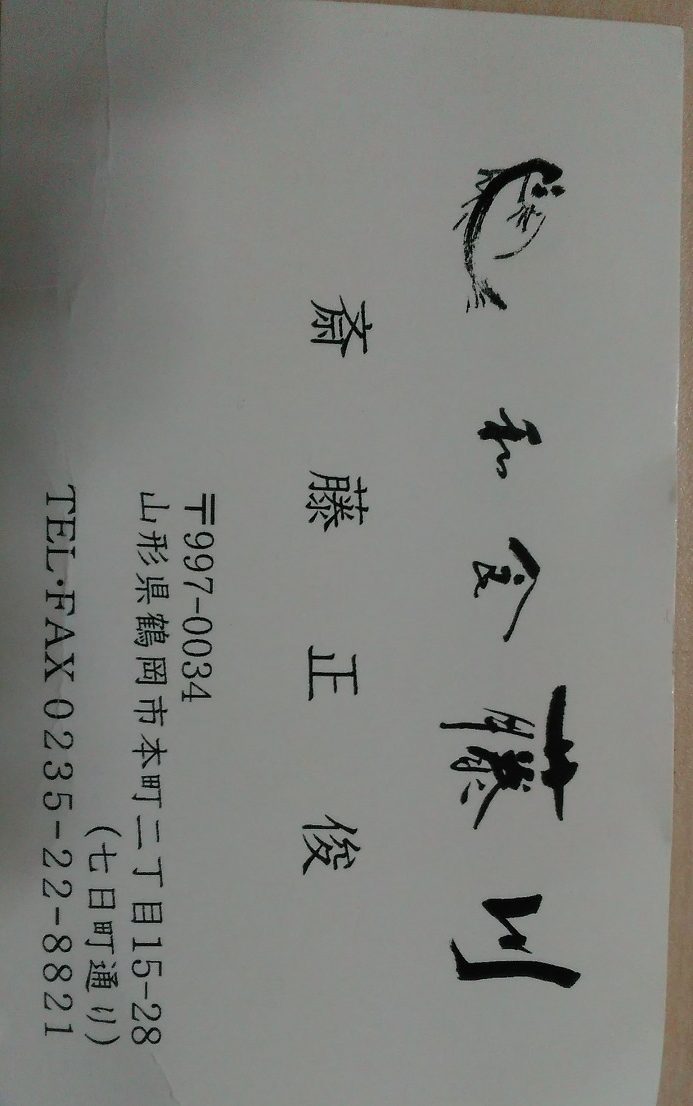 和食 藤川
斎藤正俊
〒997-0034
山形県鶴岡市本町二丁目15-28
(七日町通り)
TEL・FAX 0235-22-8821